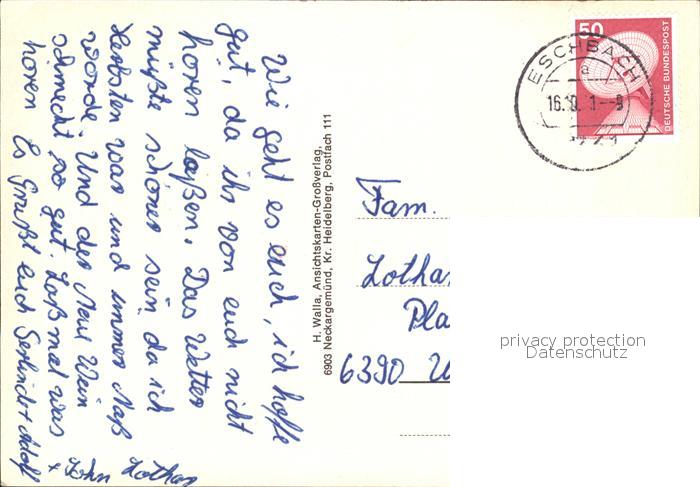 Wie geht es euch, ich hoffe
gut, da ihr von euch nicht
hören laßen. Das Wetter
müßte schöner sein da ich
Herbsten war und immer Naß
worde. Und der Neue Wein
schmeckt so gut. Laßt mal was
hören Es Grüßt euch Gerlinde + Adolf
+ John Lothar
H. Walla, Ansichtskarten-Großverlag,
6903 Neckargemünd, Kr. Heidelberg, Postfach 111
50
DEUTSCHE BUNDESPOST
ESCHBACH
a
16.10. 1--9
Fam.
Lothar
Pla
6390 U
privacy protection
Datenschutz